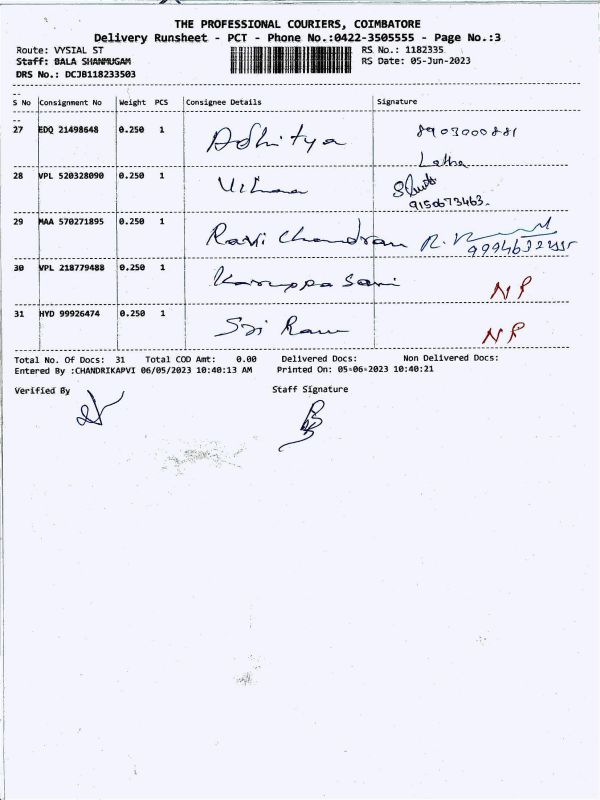 THE PROFESSIONAL COURIERS, COIMBATORE
Delivery Runsheet - PCT - Phone No.:0422-3505555 - Page No.:3
Route: VYSIAL ST RS No.: 1182335
Staff: BALA SHANMUGAM RS Date: 05-Jun-2023
DRS No.: DCJB118233503
S No Consignment No Weight PCS Consignee Details Signature
27 EDQ 21498648 0.250 1 Adhitya 8903000881
Latha
28 VPL 520328090 0.250 1
9150673463.
29 MAA 570271895 0.250 1 Ravi Chandran
30 VPL 218779488 0.250 1 Karuppa Sami NP
31 HYD 99926474 0.250 1 Sri Ram NP
Total No. Of Docs: 31 Total COD Amt: 0.00 Delivered Docs: Non Delivered Docs:
Entered By :CHANDRIKAPVI 06/05/2023 10:40:13 AM Printed On: 05-06-2023 10:40:21
Verified By Staff Signature